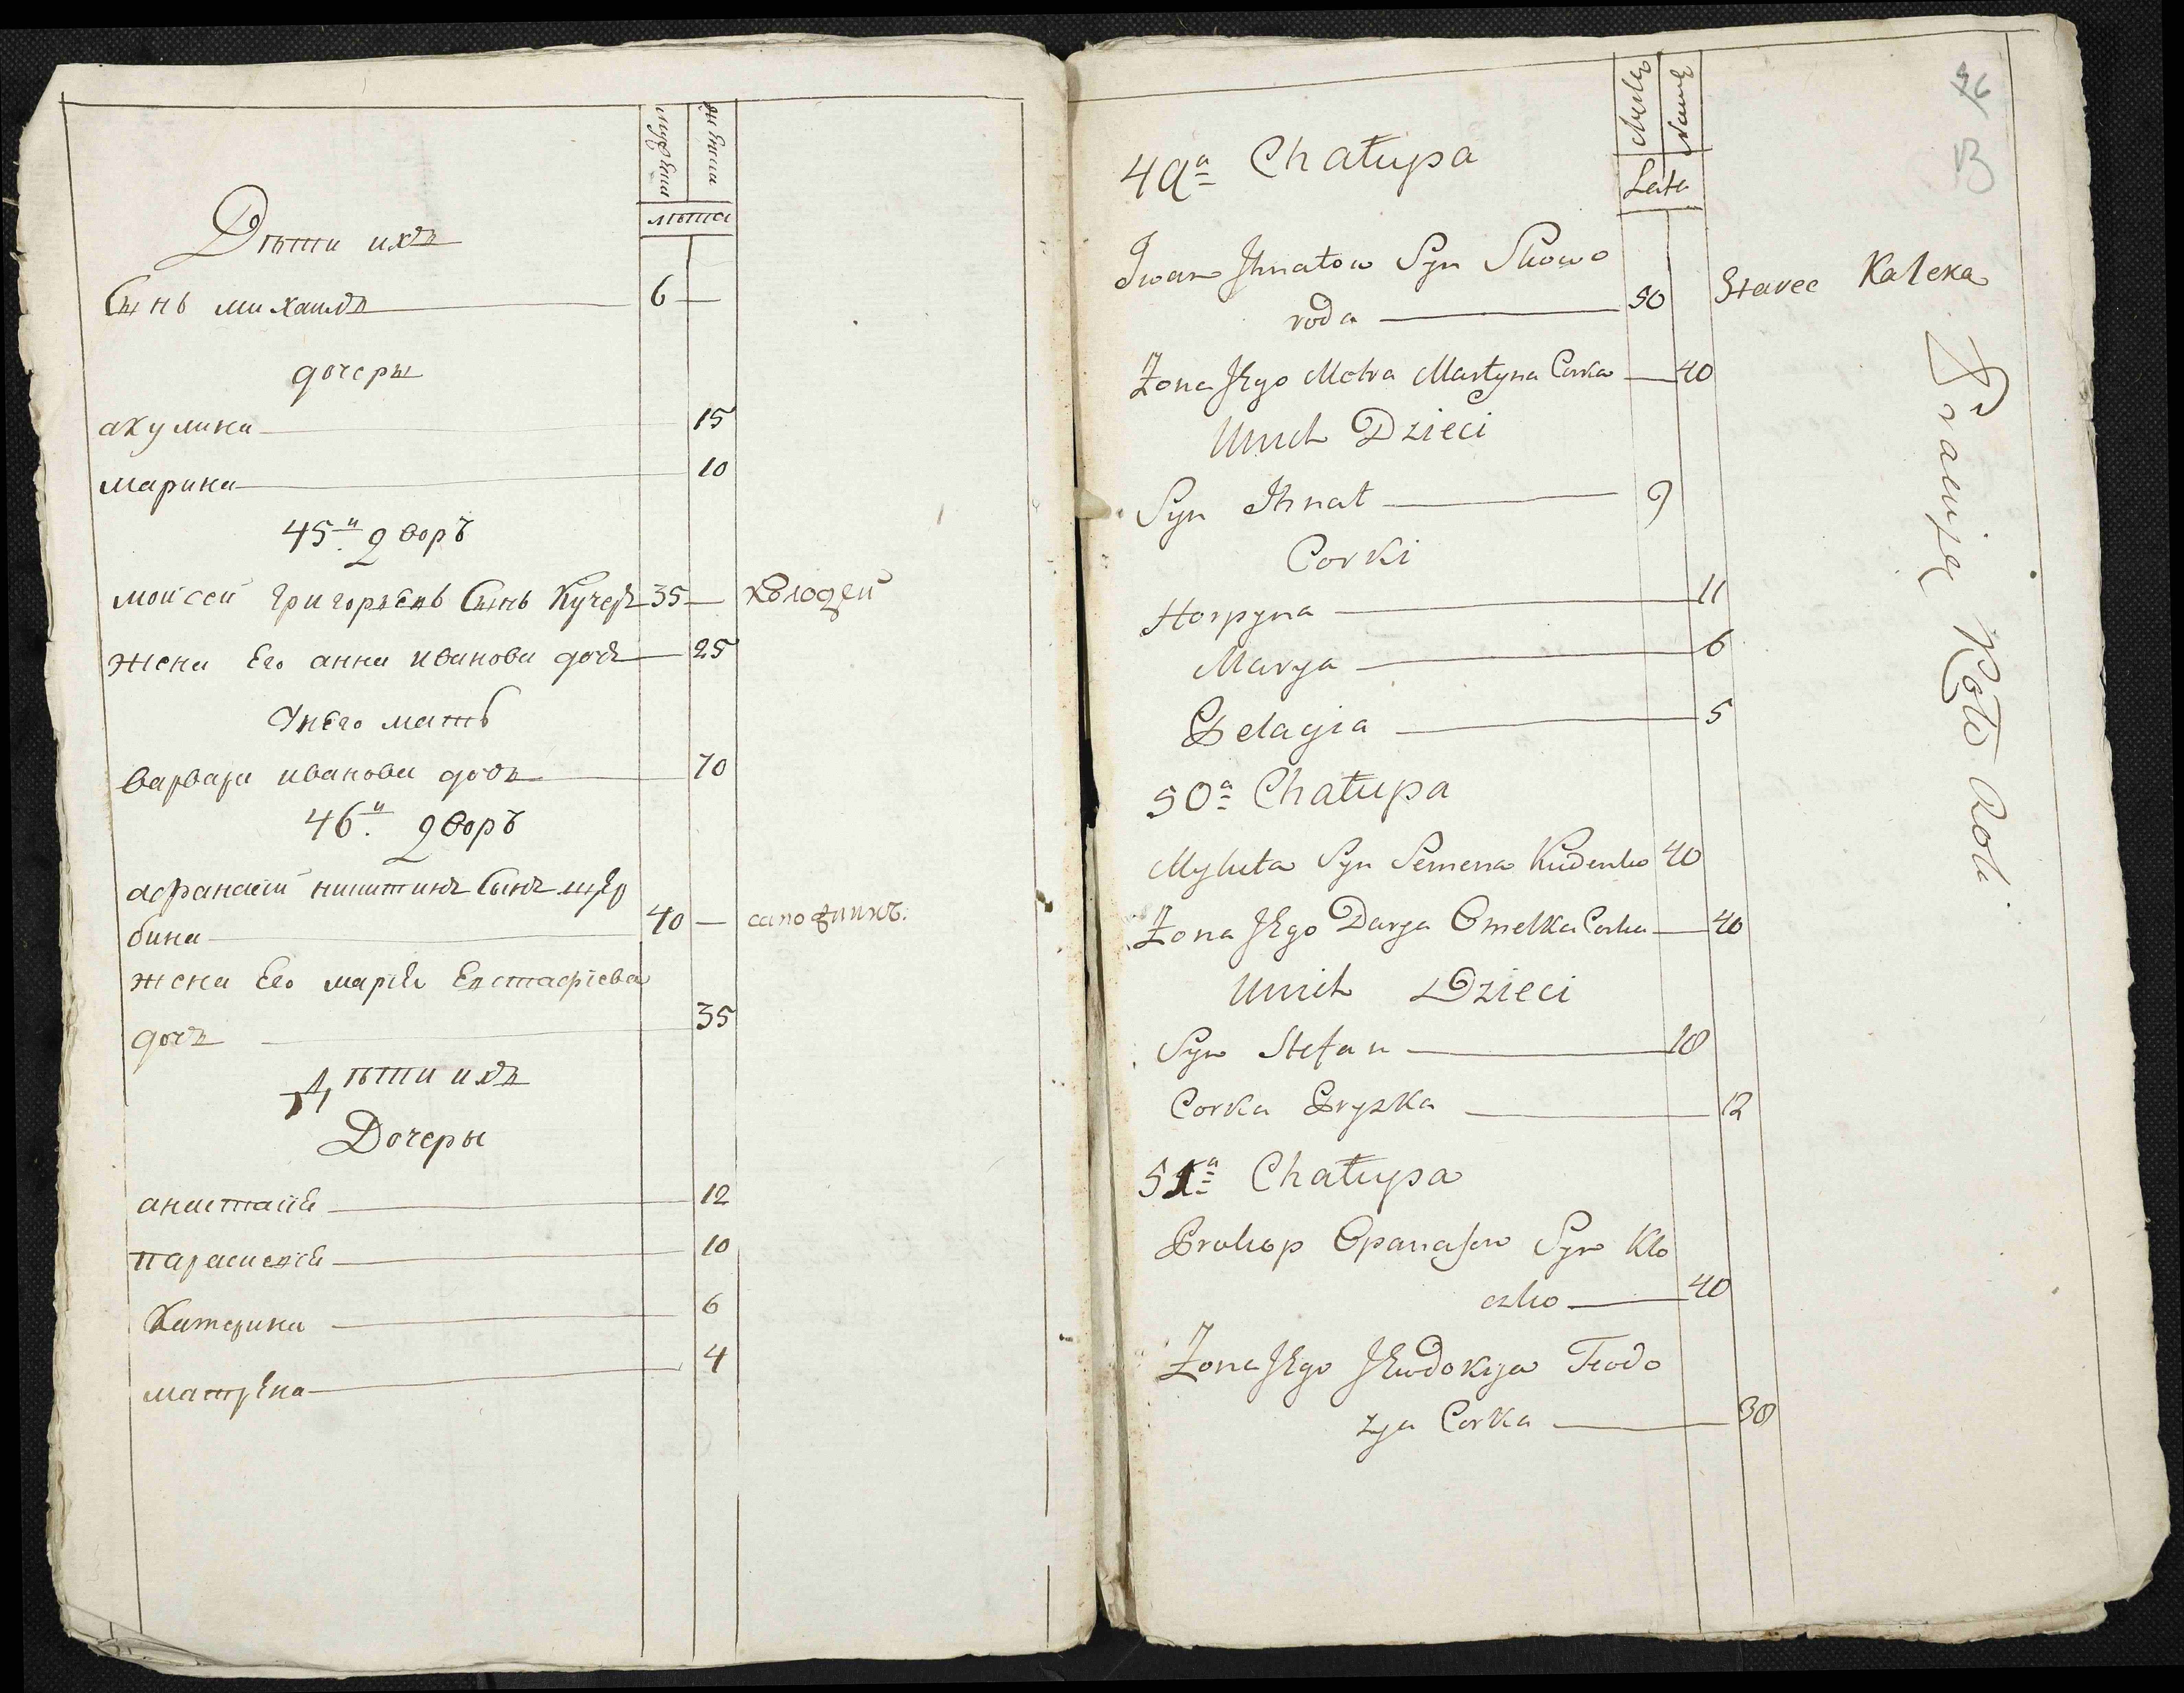 мужеска
женска
лѣта
Дѣти ихъ
Сынь михаилъ 6
дочеры
акулина 15
марина 10
45й дворъ
мойсей григорьевь Сынь Кучеръ 35 колодѣй
жена Его анна иванова дочь 25
У него мать
варвара иванова дочь 70
46й дворъ
афанасий никитинъ Сынъ щер
бина 40 сапожникъ
жена Его марія Евстафіева
дочь 35
Дѣти ихъ
Дочеры
анастасія 12
параскевія 10
Катерина 6
матрена 4
96
13
Męzkie
Lata
49a Chałupa
Jwan Jhnatow Syn Skowo
roda 50 Starec Kaleka
Żona Jego Motra Martyna Corka 40
Unich Dzieci
Syn Jhnat 9
Corki
Horpyna 11
Marya 6
Pelagia 5
50a Chałupa
Mykita Syn Semena Kudenko 40
Żona Jego Darya Omelka Corka 40
Unich Dzieci
Syn Stefan 18
Corka Pryska 12
51a Chałupa
Prokop Opanasow Syn Klo
czko 40
Żona Jego Jewdokija Teodo
zya Corka 38
Pracuję Koło Roli